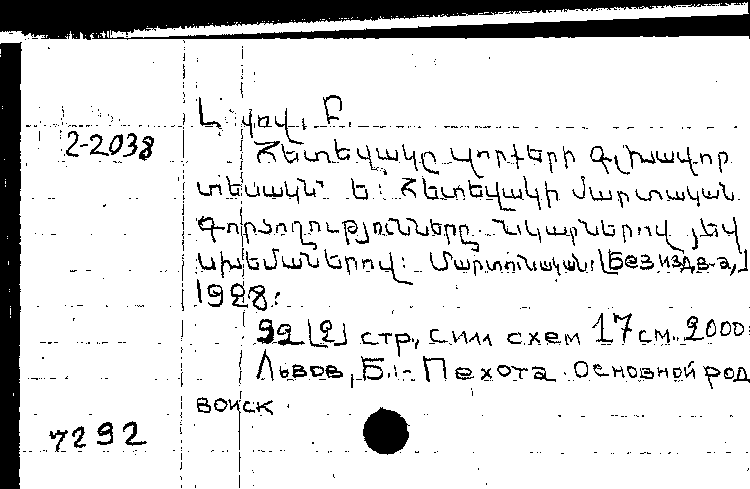 Լվով, Բ.
2-2038 Հետեվակը զորքերի գլխավոր
տեսակն ե: Հետեվակի մարտական
գործողությունները նկարներով յեվ
սխեմաներով: Մարտունական: [Без изд-ва,]
1928:
92 [2] стр, с илл схем 17 см. 2000:
Львов, Б.:- Пехота. Основной род
войск
7292